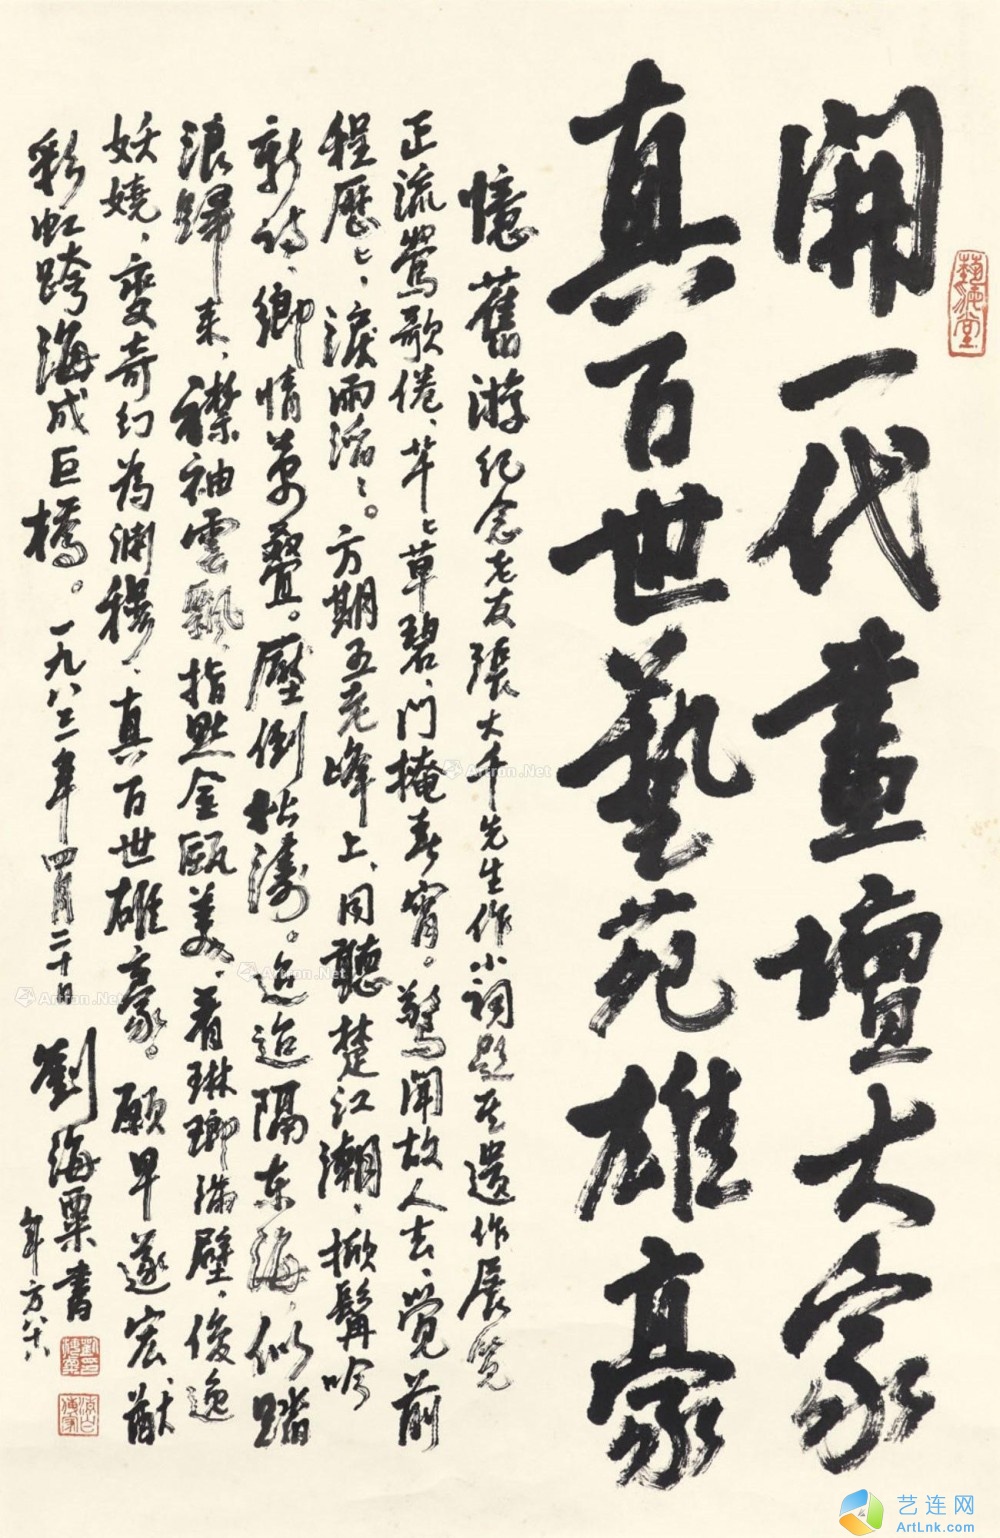 開一代畫壇大家
真百世藝苑雄豪
憶舊游紀念老友張大千先生作小詞題其遺作展覽
正流鶯歌倦、芊芊草碧、門掩春宵。驚聞故人去、覺前
程歷歷、淚雨滔滔。方期五老峰上、同聽楚江潮、掀髯吟
新詩、鄉情萬疊。壓倒松濤。迢迢隔東海、似踏
浪歸來、襟袖雲飄、指點金甌美、看琳瑯滿壁、俊逸
妖嬈、變奇幻為淵穆、真百世雄豪。願早遂宏猷
彩虹跨海成巨橋。一九八三年四月二十日
劉海粟書
年方八十八
藝海堂
Artron.Net
Artron.Net
Artron.Net
艺连网
ArtLnk.com